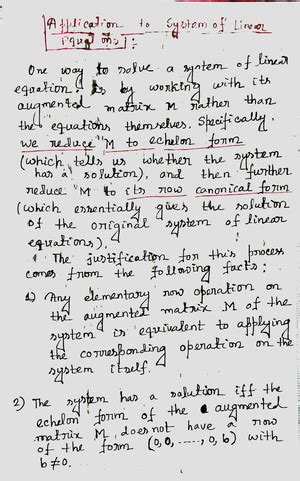 Application to System of Linear
Equations :
One way to solve a system of linear
equations is by working with its
augmented matrix M rather than
the equations themselves. Specifically,
we reduce M to echelon form
(which tells us whether the system
has a solution), and then further
reduce M to its row canonical form
(which essentially gives the solution
of the original system of linear
equations).
The justification for this process
comes from the following facts :
1) Any elementary row operation on
the augmented matrix M of the
system is equivalent to applying
the corresponding operation on the
system itself.
2) The system has a solution iff the
echelon form of the augmented
matrix M, does not have a row
of the form (0,0,-----,0, b) with
b≠0.